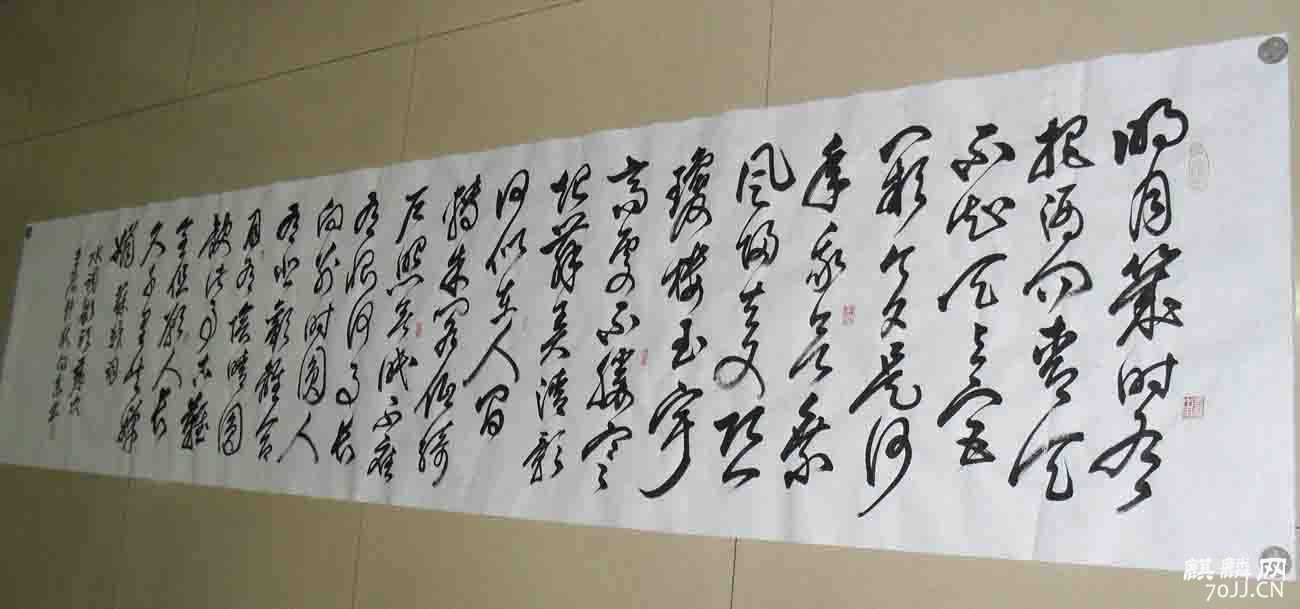 明月幾时有
把酒问青天
不知天上宫
阙今夕是何
年我欲乘
风归去又恐
琼楼玉宇
高处不胜寒
起舞弄清影
何似在人间
转朱阁低绮
户照无眠不应
有恨何事长
向别时圆人
有悲欢離合
月有阴晴圆
缺此事古难
全但愿人长
久千里共婵
娟 苏轼词
水调歌头
麒麟网
70JJ.CN